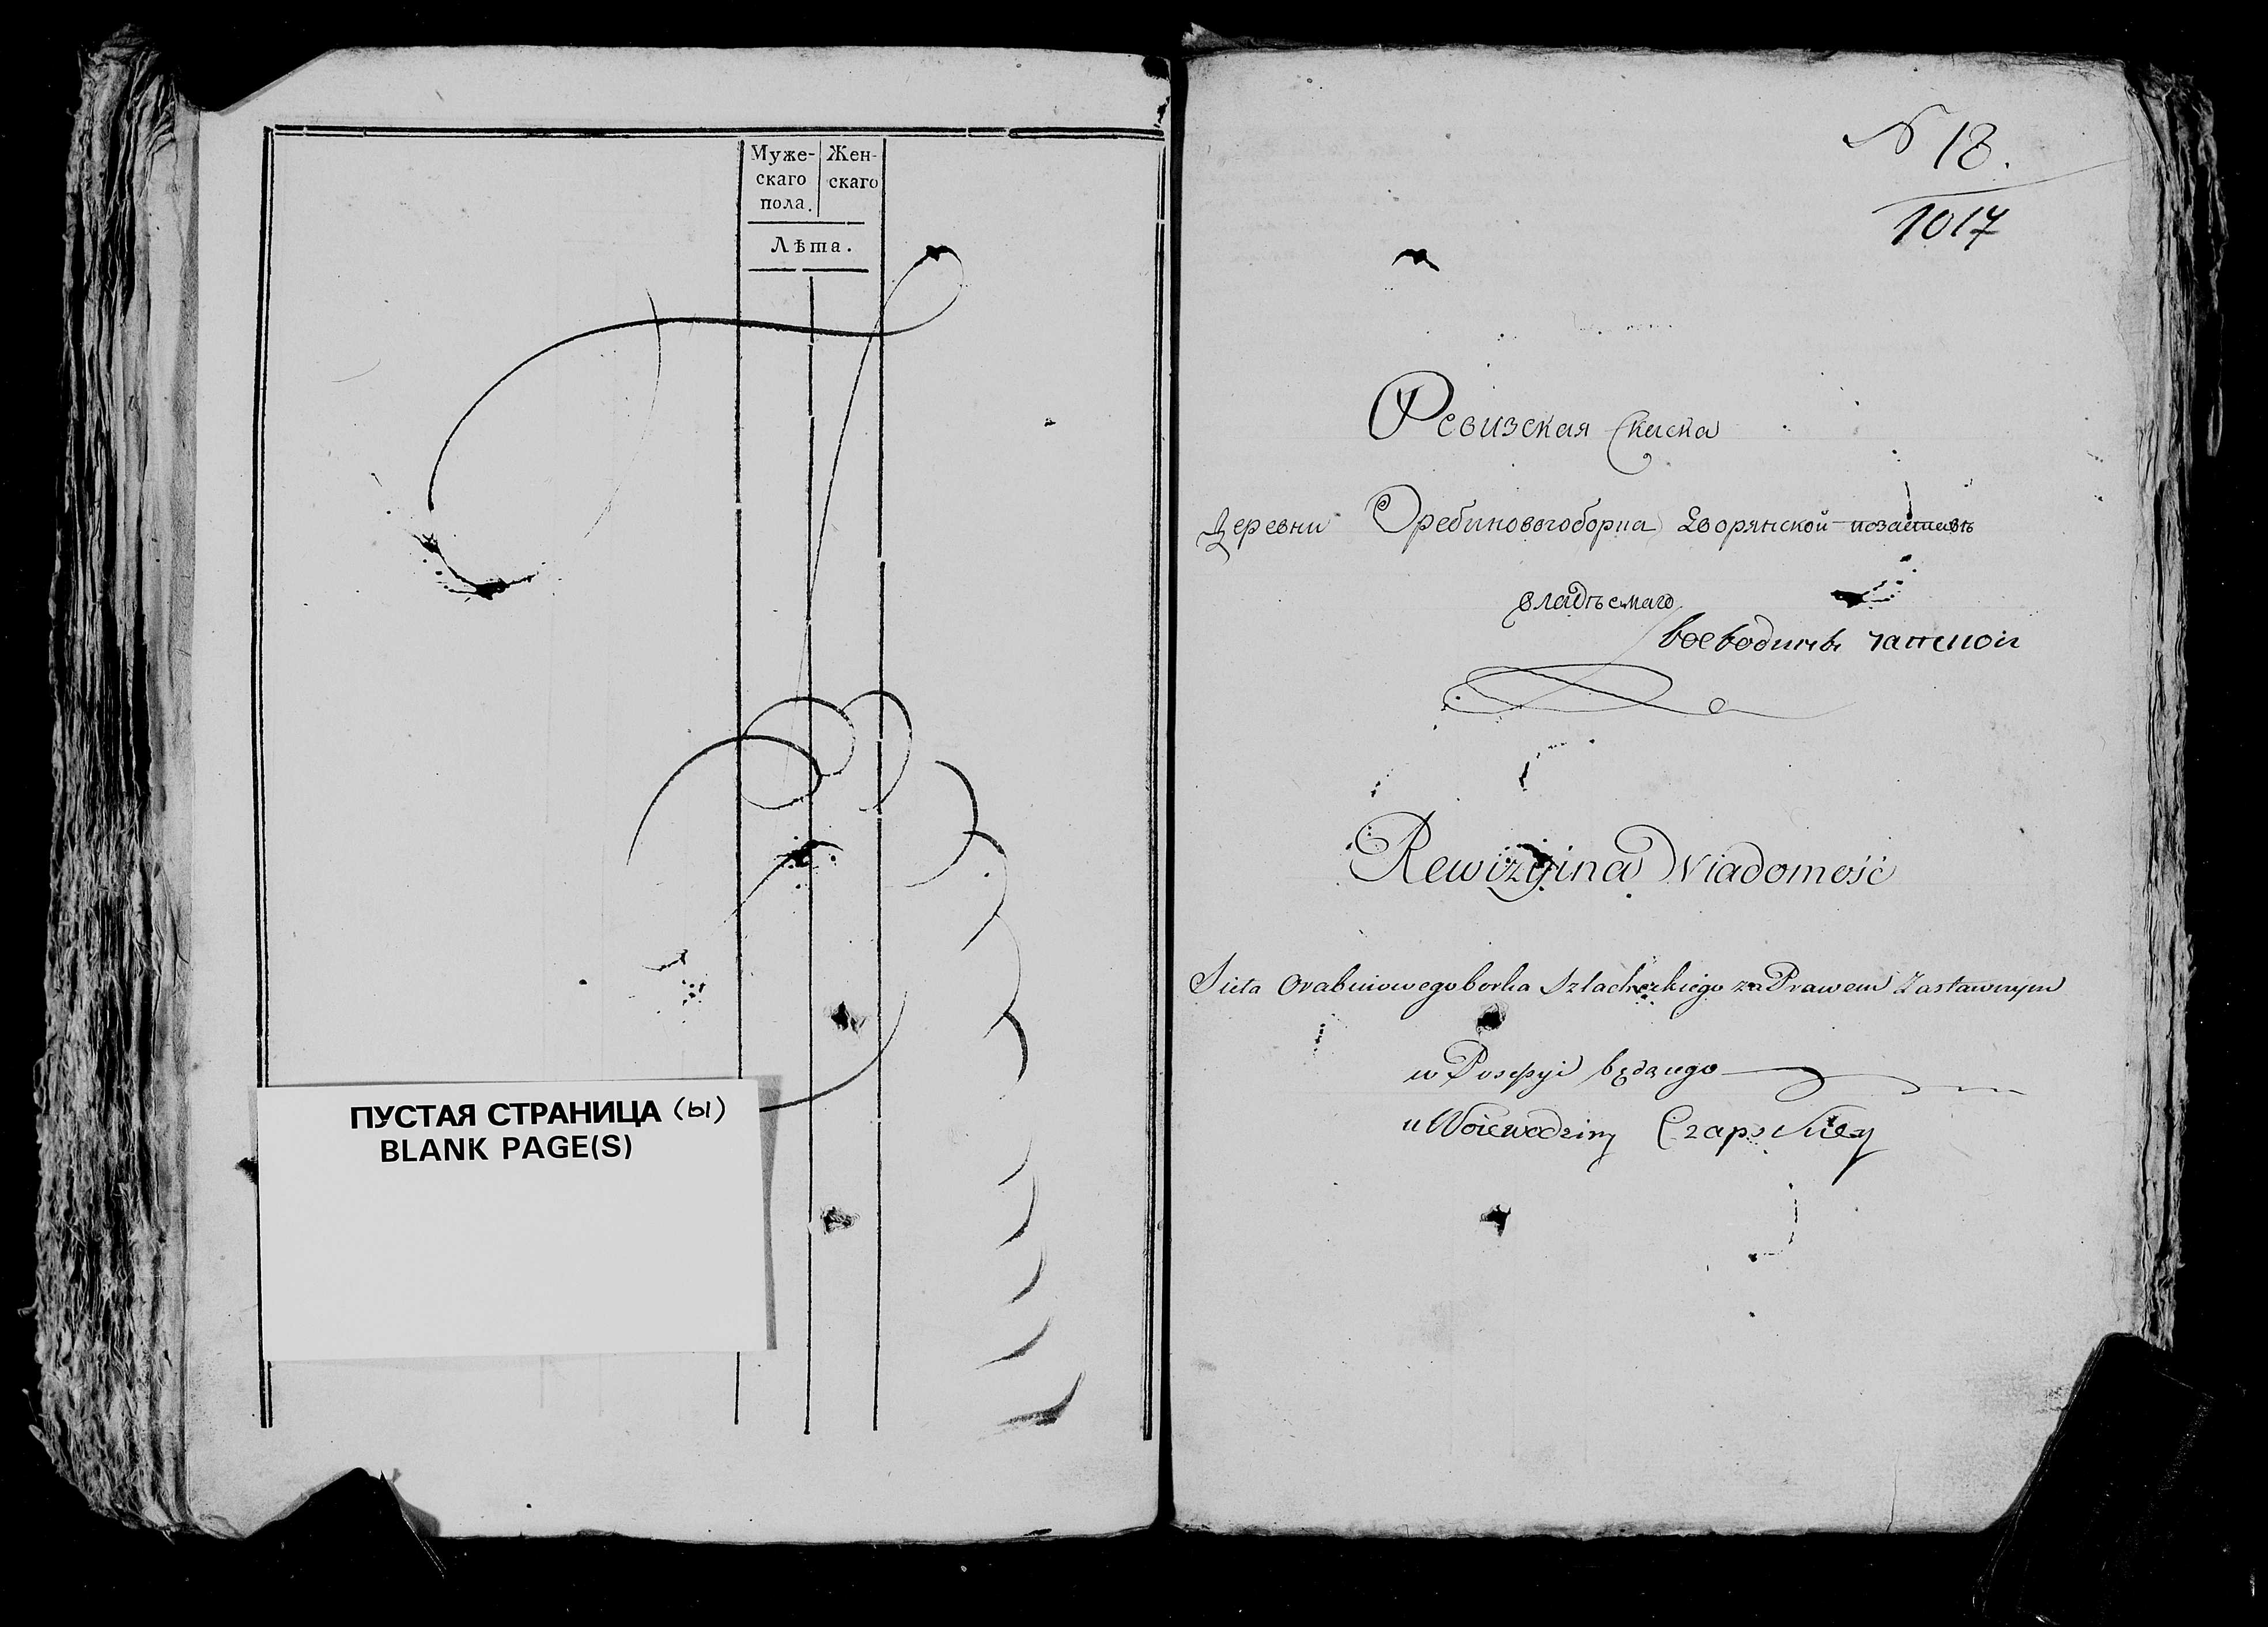 Муже-
скаго
пола.
Жен-
скаго
Лѣта.
ПУСТАЯ СТРАНИЦА (Ы)
BLANK PAGE(S)
N 18.
1017
Ревизская Скаска
Деревни Оребиновогоборка Дворянской позаставѣ
владѣемаго
воеводинѣ чапской
Rewizyina Wiadomość
Sieła Orabinowegoborka Szlacheckiego za Prawem Zastawnym
w Posessyi będącego
u Woiewodziny Czapskiey